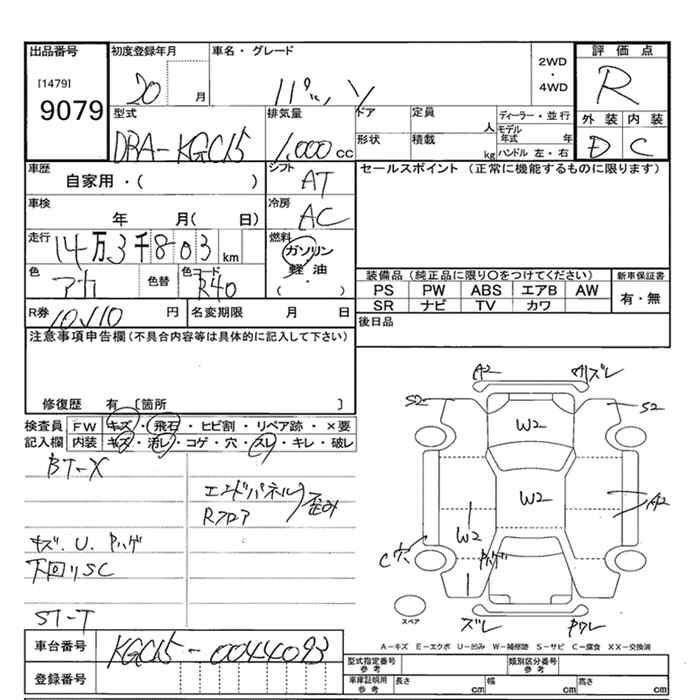 出品番号 初度登録年月 車名・グレード 2WD・4WD 評価点
[1479]
9079
20 月
R
外装 内装
D C
型式 排気量 ドア 定員 人 ディーラー・並行
モデル年式 年
DBA-KGC15 1,000 cc
形状 積載 kg ハンドル 左・右
車歴 シフト セールスポイント (正常に機能するものに限ります)
自家用・( ) AT
車検 冷房
年 月( 日) AC
走行 燃料
14万3千803 km ガソリン
軽油
・
( )
色 アカ 色替 色コード R40
装備品 (純正品に限り○をつけてください) 新車保証書
PS PW ABS エアB AW 有・無
SR ナビ TV カワ
R券 円 名変期限 月 日
後日品
注意事項申告欄(不具合内容等は具体的に記入して下さい)
修復歴 有 [箇所 ]
検査員 FW キズ・飛石・ヒビ割・リペア跡・×要
記入欄 内装 キズ・汚レ・コゲ・穴・スレ・キレ・破レ
BT-X
エンドパネル
Rフロア 歪み
キズ.U.
下回りSC
ST-T
A2 ズレ
S2 S2
W2
W2 A2
W2
C穴
ズレ
スペア
A-キズ E-エクボ U-凹み W-補修跡 S-サビ C-腐食 XX-交換済
車台番号 KGC15-0044093
型式指定番号 参考 類別区分番号 参考
登録番号 車庫証明用 参考 長さ cm 幅 cm 高さ cm